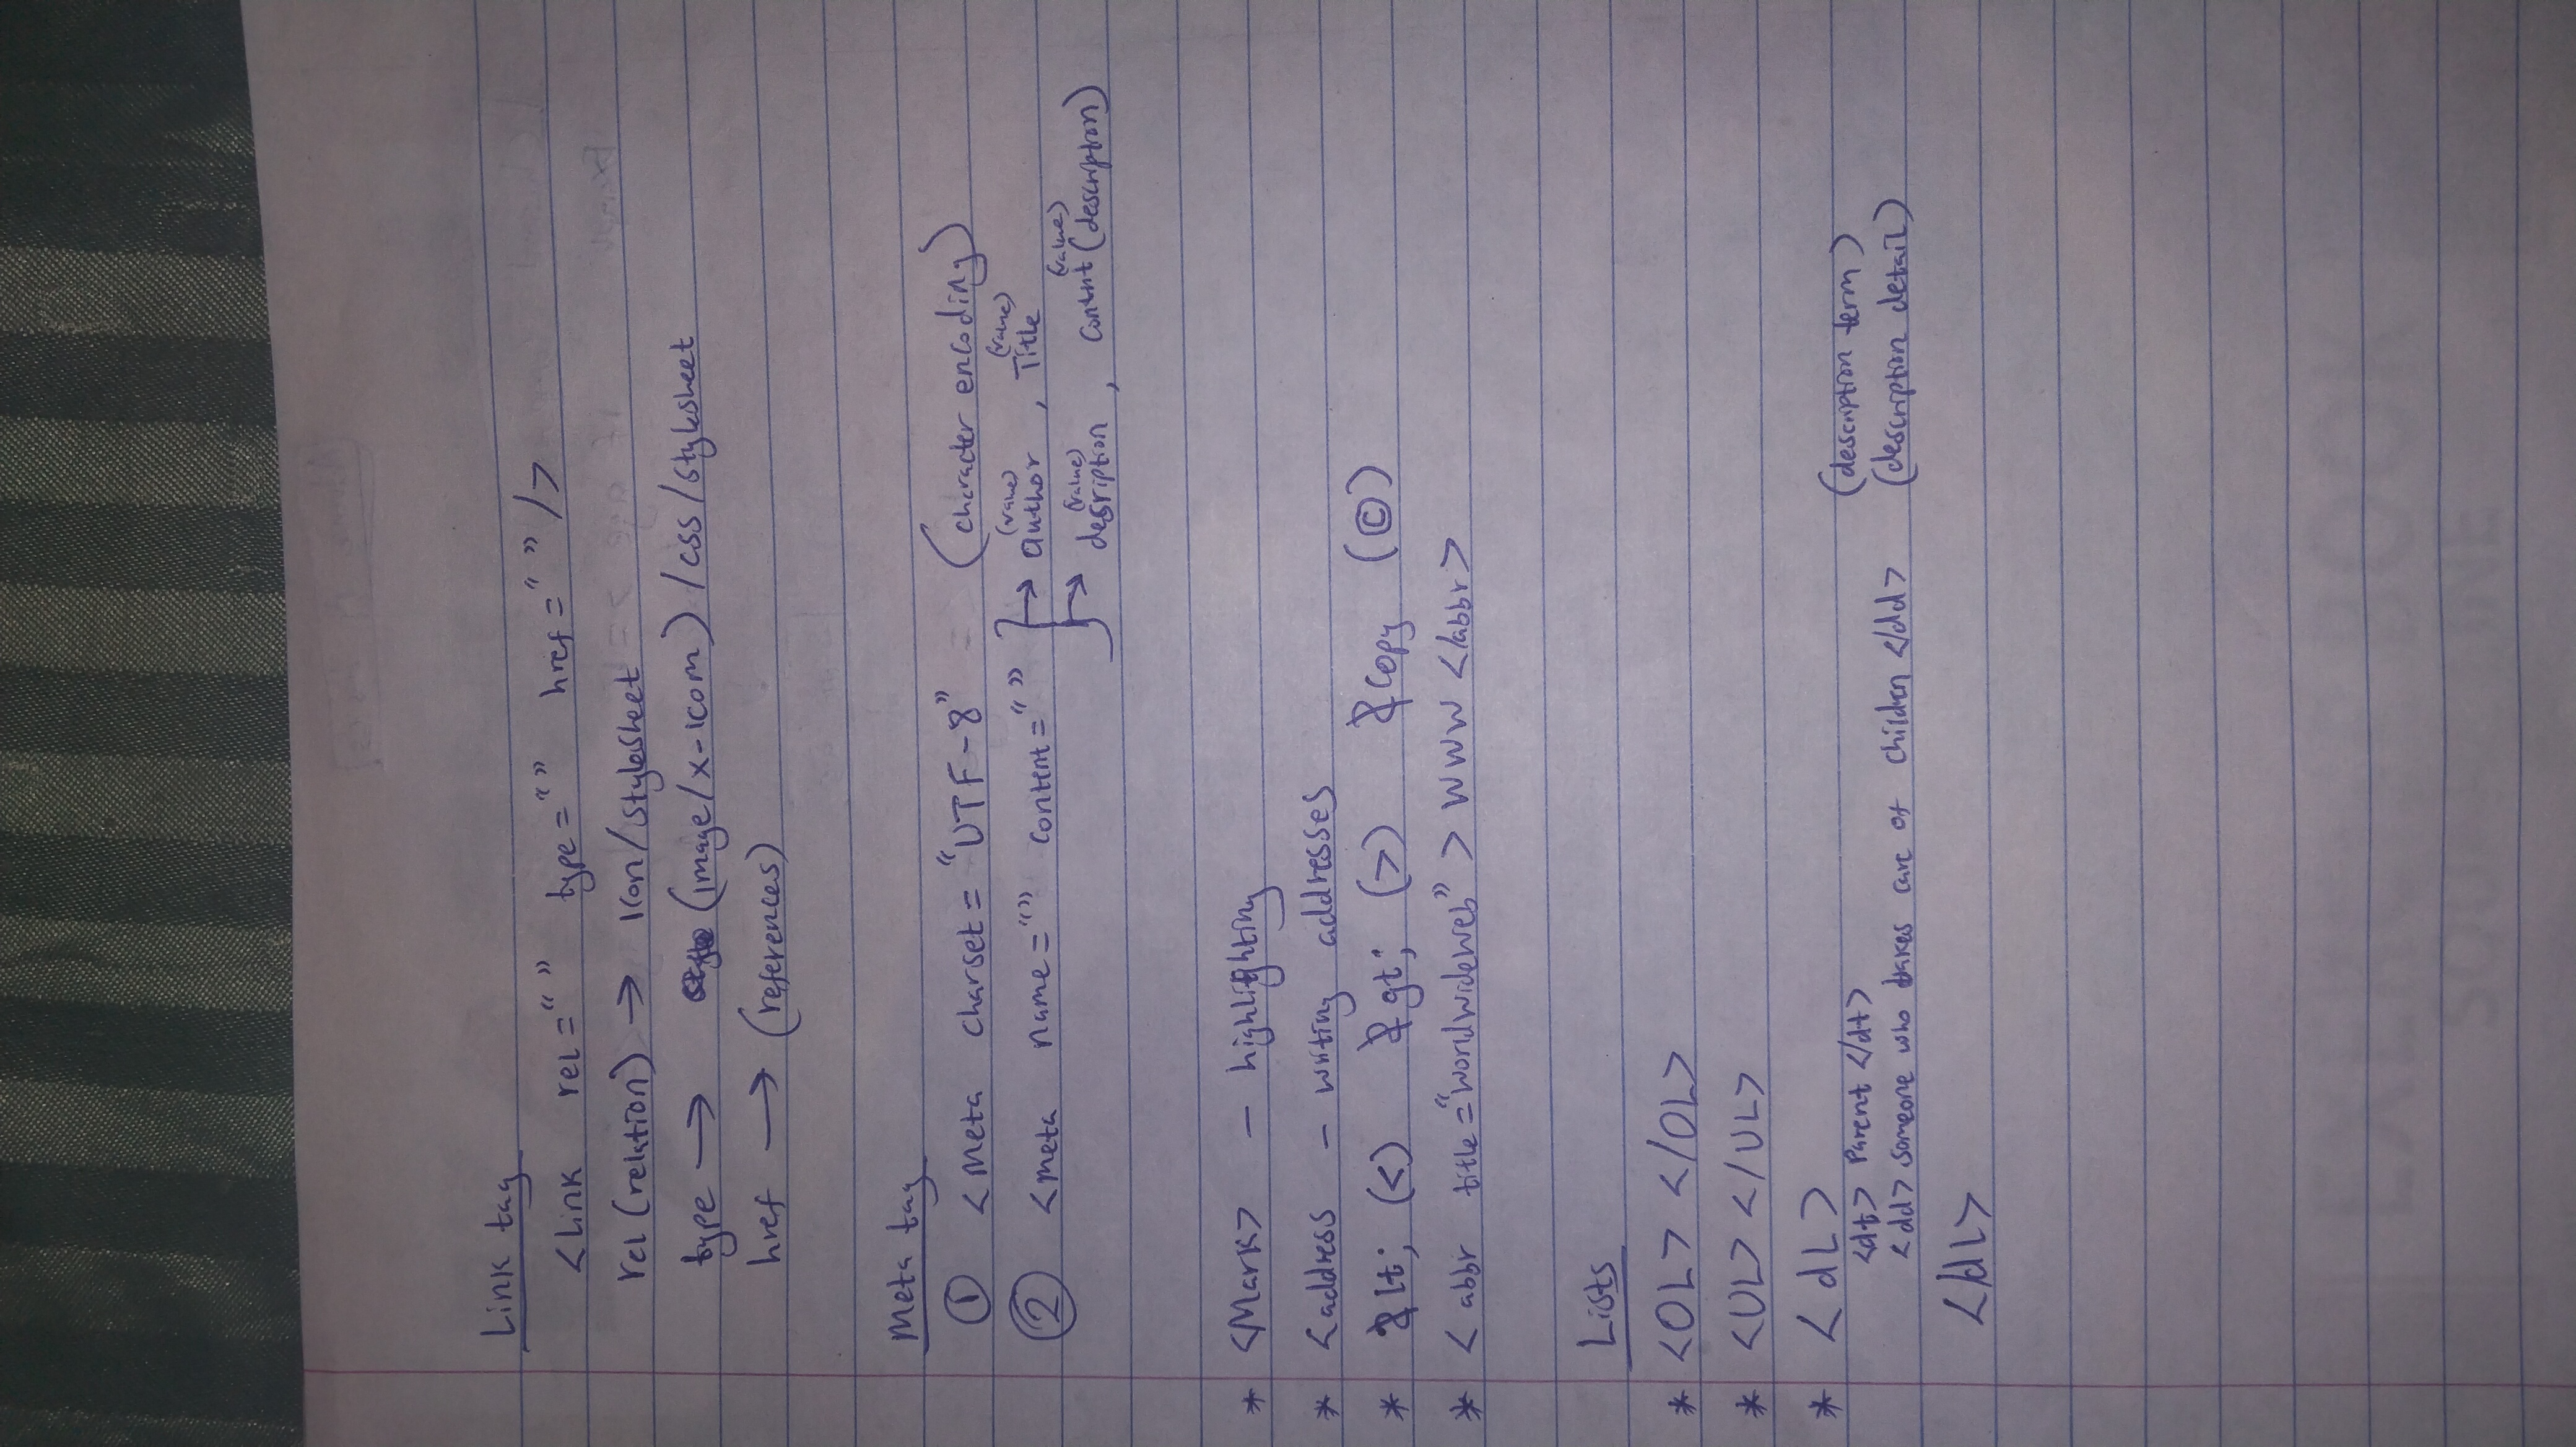 Link tag
<Link rel=“ ” type=“ ” href=“ ” />
rel (relation) → Icon/stylesheet
type → (image/x-icom) /css/stylesheet
href → (references)
Meta tag
① <Meta charset= “UTF-8” = (character encoding)
② <meta name=“” content=“ ” → (value) author , (value) Title
→ (value) desription , (value) Contnt (description)
* <Mark> – highlighting
* <address – writing addresses
* &lt; (<) &gt; (>) &copy (©)
* < abbr title=“worldwideweb” > WWW </abbr>
Lists
* <OL> </OL>
* <UL> </UL>
* <dL>
<dt> Parent </dt> (description term)
<dd> someone who takes care of children </dd> (description detail)
</dL>
EXERCISE BOOK